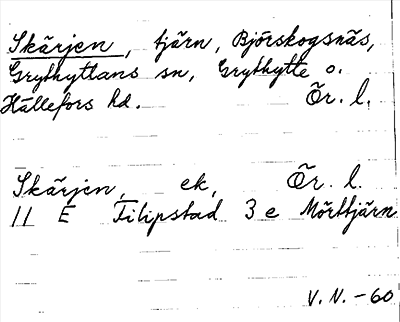 Skärjen, tjärn, Björskogsnäs,
Grythyttans sn, Grythytte o.
Hällefors hd. Ör. l.
Skärjen, ek, Ör. l.
11 E Filipstad 3 e Mörttjärn
V. N. - 60